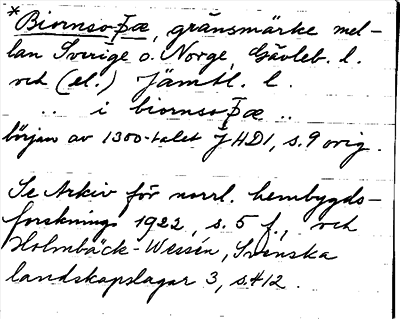 *Biornsoþæ, gränsmärke mel-
lan Sverige o. Norge, Gävleb. l.
och (el.) Jämtl. l.
.. i biornsoþæ ..
början av 1300-talet JHD1, s. 9 orig.
Se Arkiv för norrl. hembygds-
forskning 1922, s. 5 f., och
Holmbäck-Wessén, Svenska
landskapslagar 3, s. 412.